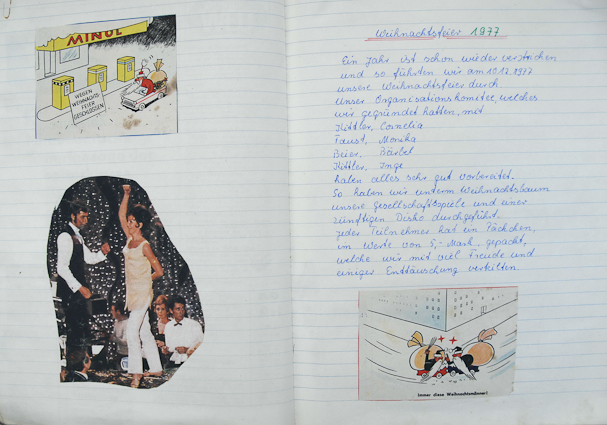 MINOL
WEGEN
WEIHNACHTS-
FEIER
GESCHLOSSEN
Weihnachtsfeier 1977
Ein Jahr ist schon wieder verstrichen
und so führten wir am 10.12.1977
unsere Weihnachtsfeier durch.
Unser Organisationskomitee, welches
wir gegründet hatten, mit
Kittler, Cornelia
Faust, Monika
Beier, Bärbel
Kittler, Inge
haben alles sehr gut vorbereitet.
So haben wir unterm Weihnachtsbaum
unsere Gesellschaftsspiele und einer
zünftigen Disko durchgeführt.
Jeder Teilnehmer hat ein Päckchen,
im Werte von 5,- Mark gepackt,
welche wir mit viel Freude und
einiger Enttäuschung verteilten.
Immer diese Weihnachtsmänner!